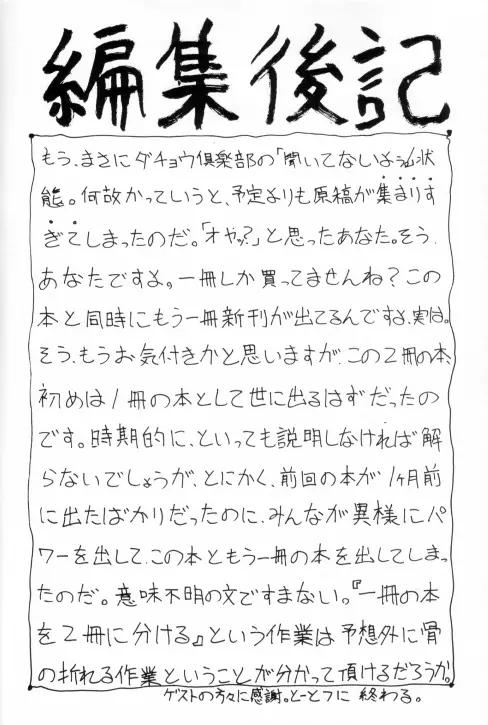 編集後記
もう、まさにダチョウ倶楽部の「聞いてないよぅ」状
態。何故かっていうと、予定よりも原稿が集まりす
ぎてしまったのだ。「オヤッ?」と思ったあなた。そう、
あなたですよ。一冊しか買ってませんね?この
本と同時にもう一冊新刊が出てるんですよ、実は。
そう、もうお気付きかと思いますが、この2冊の本、
初めは1冊の本として世に出るはずだったの
です。時期的に、といっても説明しなければ解
らないでしょうが、とにかく、前回の本が1ヶ月前
に出たばかりだったのに、みんなが異様にパ
ワーを出して、この本ともう一冊の本を出してしまっ
たのだ。意味不明の文ですまない。『一冊の本
を2冊に分ける』という作業は予想外に骨
の折れる作業ということが分かって頂けるだろうか。
ゲストの方々に感謝。とーとつに終わる。